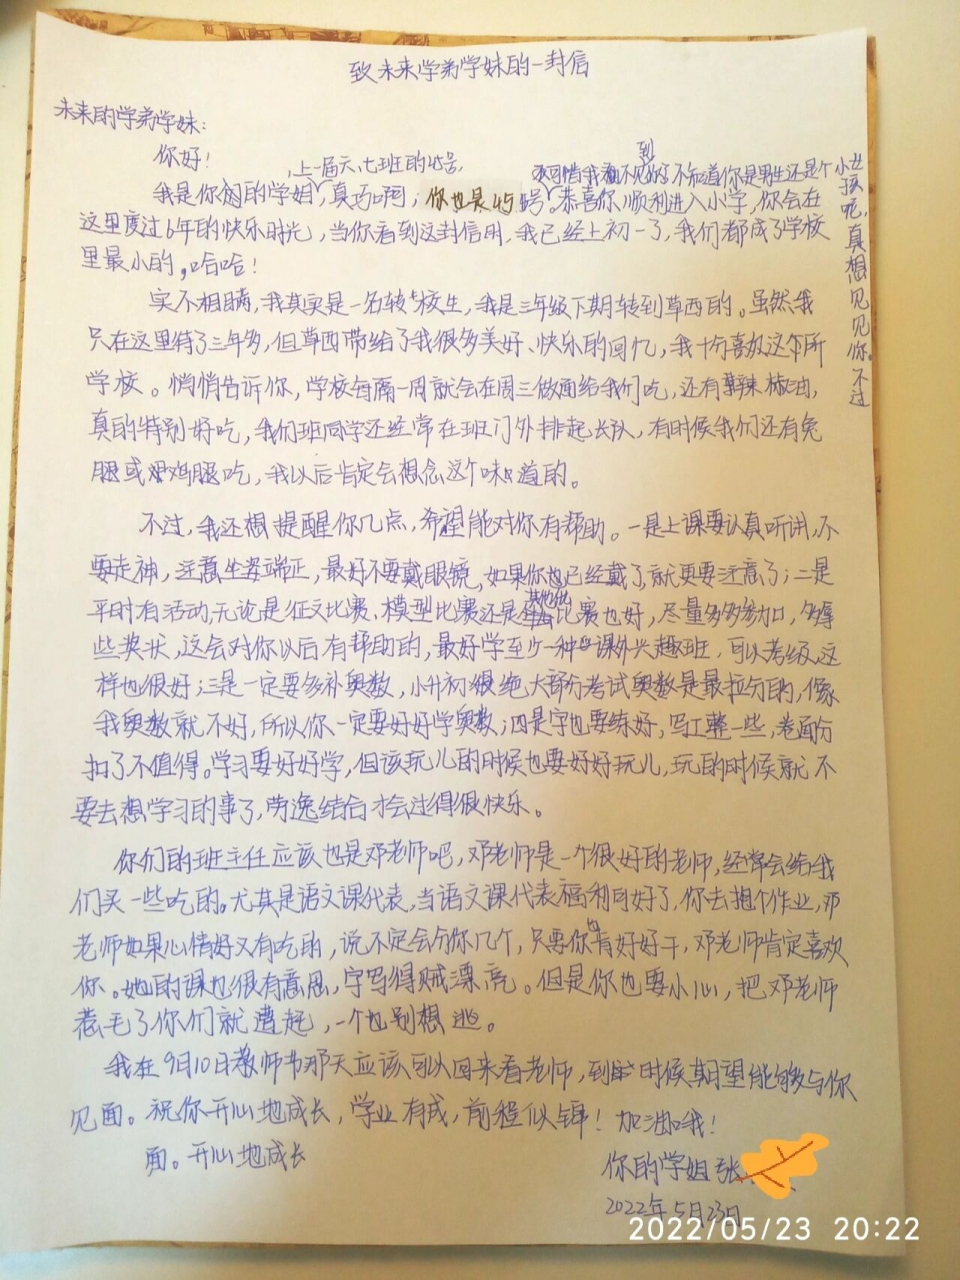 致未来学弟学妹的一封信
未来的学弟学妹:
你好!
,上一届六、七班的45号,
到
可惜我看不见你,不知道你是男生还是个小女
孩呢,真想见见你。不过
我是你的学姐,真巧啊;你也是45号。恭喜你顺利进入小学,你会在
这里度过6年的快乐时光,当你看到这封信时,我已经上初一了,我们都成了学校
里最小的,哈哈!
实不相瞒,我其实是一名转校生,我是三年级下期转到草西的。虽然我
只在这里待了三年多,但草西带给了我很多美好、快乐的回忆,我十分喜欢这所
学校。悄悄告诉你,学校每隔一周就会在周三做面给我们吃,还有辣椒油,
真的特别好吃,我们班同学还经常在班门外排起长队,有时候我们还有兔
腿或鸡腿吃,我以后肯定会想念这个味道的。
不过,我还想提醒你几点,希望能对你有帮助。一是上课要认真听讲,不
要走神,注意坐姿端正,最好不要戴眼镜,如果你也已经戴了,就更要注意了;二是
平时有活动,无论是征文比赛、模型比赛还是其他比赛也好,尽量多多参加,多拿
些奖状,这会对你以后有帮助的,最好学至少一种课外兴趣班,可以考级,这
样也很好;三是一定要多补奥数,小升初绝大部分考试奥数是最拉分的,像
我奥数就不好,所以你一定要好好学奥数;四是字也要练好,写工整一些,卷面分
扣了不值得。学习要好好学,但该玩儿的时候也要好好玩儿,玩的时候就不
要去想学习的事了,劳逸结合才会过得很快乐。
你们的班主任应该也是邓老师吧,邓老师是一个很好的老师,经常会给我
们买一些吃的。尤其是语文课代表,当语文课代表福利可好了,你去抱个作业,邓
老师如果心情好又有吃的,说不定会分你几个,只要你肯好好干,邓老师肯定喜欢
你。她的课也很有意思,字写得贼漂亮。但是你也要小心,把邓老师
惹毛了你们就遭起,一个也别想逃。
我在9月10日教师节那天应该可以回来看老师,到时候期望能够与你
见面。祝你开心地成长,学业有成,前程似锦!加油哦!
面。开心地成长
你的学姐 张
2022年5月23日
2022/05/23 20:22